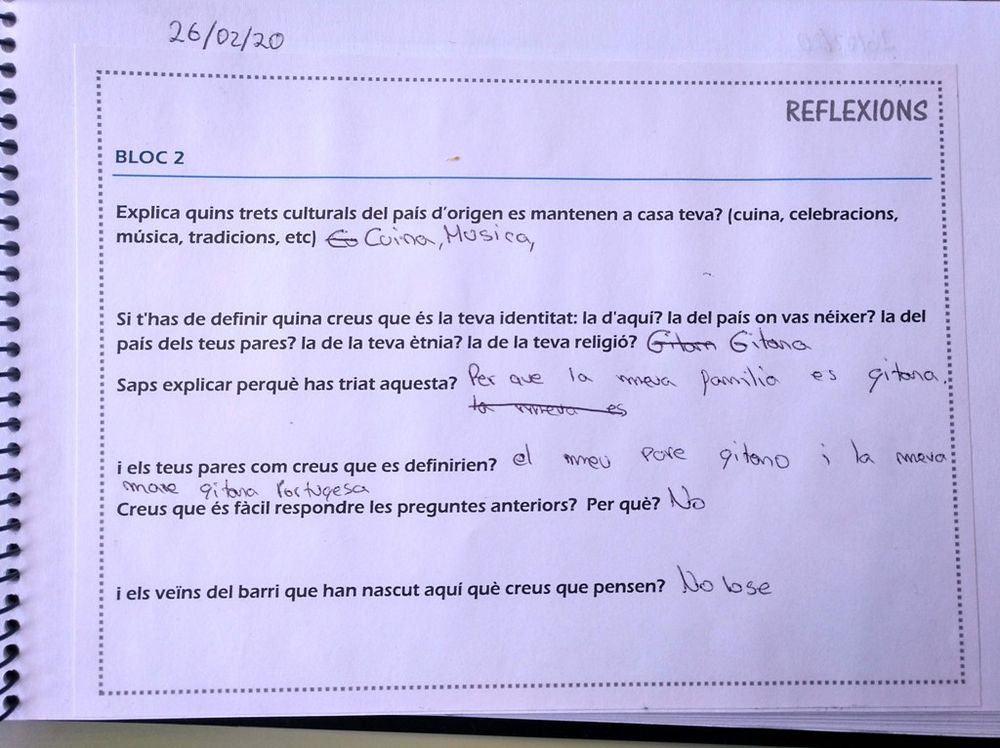 26/02/20
REFLEXIONS
BLOC 2
Explica quins trets culturals del país d'origen es mantenen a casa teva? (cuina, celebracions,
música, tradicions, etc) Cuina, Musica,
Si t'has de definir quina creus que és la teva identitat: la d'aquí? la del país on vas néixer? la del
país dels teus pares? la de la teva ètnia? la de la teva religió? Gitam Gitana
Saps explicar perquè has triat aquesta? Per que la meva familia es gitana.
la meva es
i els teus pares com creus que es definirien? el meu pare gitano i la meva
mare gitana Portugesa
Creus que és fàcil respondre les preguntes anteriors? Per què? No
i els veïns del barri que han nascut aquí què creus que pensen? No lose